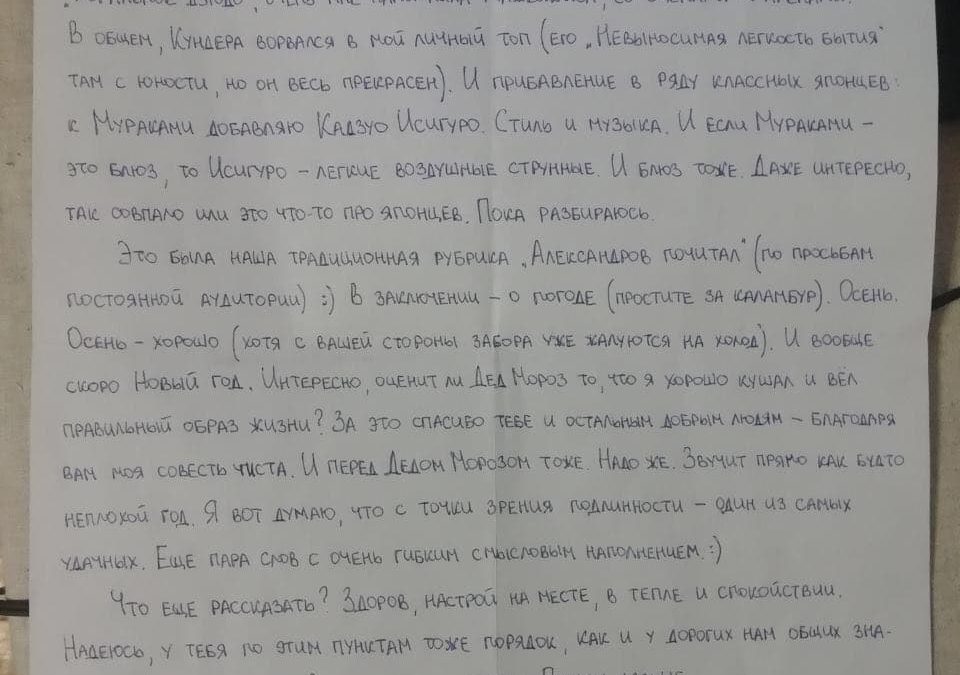 В общем, Кундера ворвался в мой личный топ (его „Невыносимая легкость бытия"
там с юности, но он весь прекрасен). И прибавление в ряду классных японцев:
к Мураками добавляю Кадзуо Исигуро. Стиль и музыка. И если Мураками –
это блюз, то Исигуро – легкие воздушные струнные. И блюз тоже. Даже интересно,
так совпало или это что-то про японцев. Пока разбираюсь.
Это была наша традиционная рубрика „Александров почитал" (по просьбам
постоянной аудитории) :) В заключении – о погоде (простите за каламбур). Осень.
Осень – хорошо (хотя с вашей стороны забора уже жалуются на холод). И вообще
скоро Новый год. Интересно, оценит ли Дед Мороз то, что я хорошо кушал и вёл
правильный образ жизни? За это спасибо тебе и остальным добрым людям – благодаря
вам моя совесть чиста. И перед Дедом Морозом тоже. Надо же. Звучит прямо как будто
неплохой год. Я вот думаю, что с точки зрения подлинности – один из самых
удачных. Еще пара слов с очень гибким смысловым наполнением. :)
Что еще рассказать? Здоров, настрой на месте, в тепле и спокойствии.
Надеюсь, у тебя по этим пунктам тоже порядок, как и у дорогих нам общих зна-